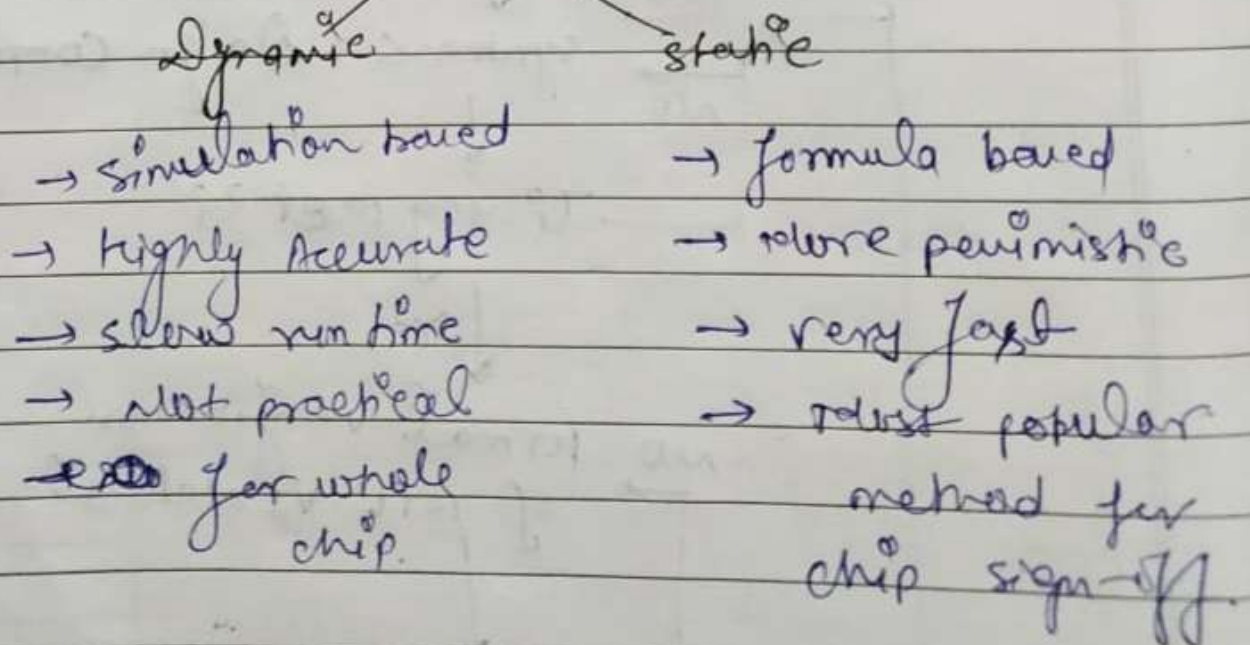 Dynamic
static
→ simulation based
→ Highly Accurate
→ slow run time
→ Not practical
→ for whole
chip.
→ formula based
→ More pessimistic
→ very fast
→ Most popular
method for
chip sign-off.